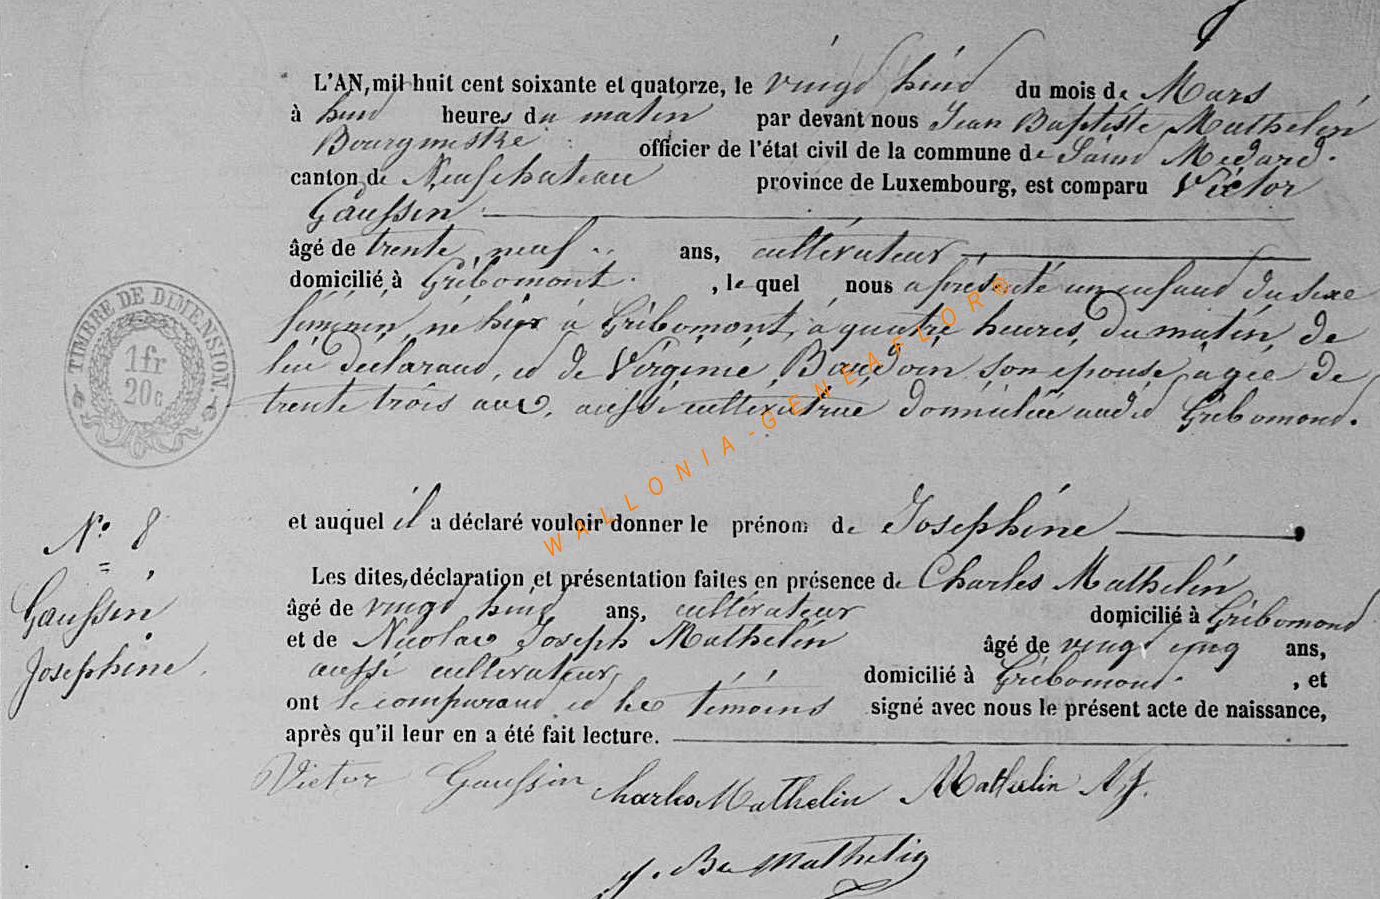 L'AN, mil huit cent soixante et quatorze, le vingt huit du mois de Mars
à huit heures du matin par devant nous Jean Baptiste Mathelin
Bourgmestre officier de l'état civil de la commune de Saint Médard.
canton de Neufchateau province de Luxembourg, est comparu Victor
Gaussin
âgé de trente neuf ans, cultivateur
domicilié à Gribomont. , le quel nous a présenté un enfant du sexe
féminin, né hier à Gribomont, à quatre heures, du matin, de
lui déclarant, et de Virginie, Baudoin son épouse, agée de
trente trois ans, aussi cultivatrice domiciliée audit Gribomont.
et auquel il a déclaré vouloir donner le prénom de Josephine
Les dites, déclaration et présentation faites en présence de Charles Mathelin
âgé de vingt huit ans, cultivateur domicilié à Gribomont
et de Nicolas Joseph Mathelin âgé de vingt cinq ans,
aussi cultivateur, domicilié à Gribomont. , et
ont le comparant et les témoins signé avec nous le présent acte de naissance,
après qu'il leur en a été fait lecture.
Victor Gaussin Charles Mathelin Mathelin N J.
J. Bte Mathelin
TIMBRE DE DIMENSION
1fr
20c
N° 8
Gaussin
Josephine.
WALLONIA-GENEAFLOR®